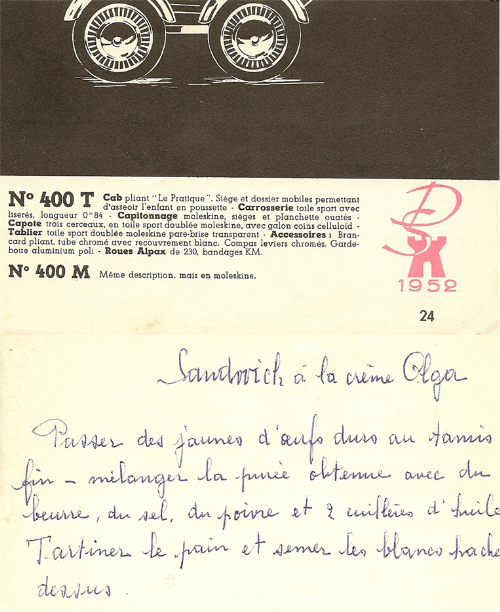 Nº 400 T Cab pliant "Le Pratique". Siège et dossier mobiles permettant
d'asseoir l'enfant en poussette - Carrosserie toile sport avec
liserés, longueur 0ᵐ84 - Capitonnage moleskine, sièges et planchette ouatés -
Capote trois cerceaux, en toile sport doublée moleskine, avec galon coins celluloïd -
Tablier toile sport doublée moleskine pare-brise transparent - Accessoires : Bran-
card pliant, tube chromé avec recouvrement blanc. Compas leviers chromés. Garde-
boue aluminium poli - Roues Alpax de 230, bandages KM.
Nº 400 M Même description. mais en moleskine.
1952
24
Sandwich à la crème Olga
Passer des jaunes d'œufs durs au tamis
fin - mélanger la purée obtenue avec du
beurre, du sel, du poivre et 2 cuillères d'huile
Tartiner le pain et semer les blancs hachés
dessus.